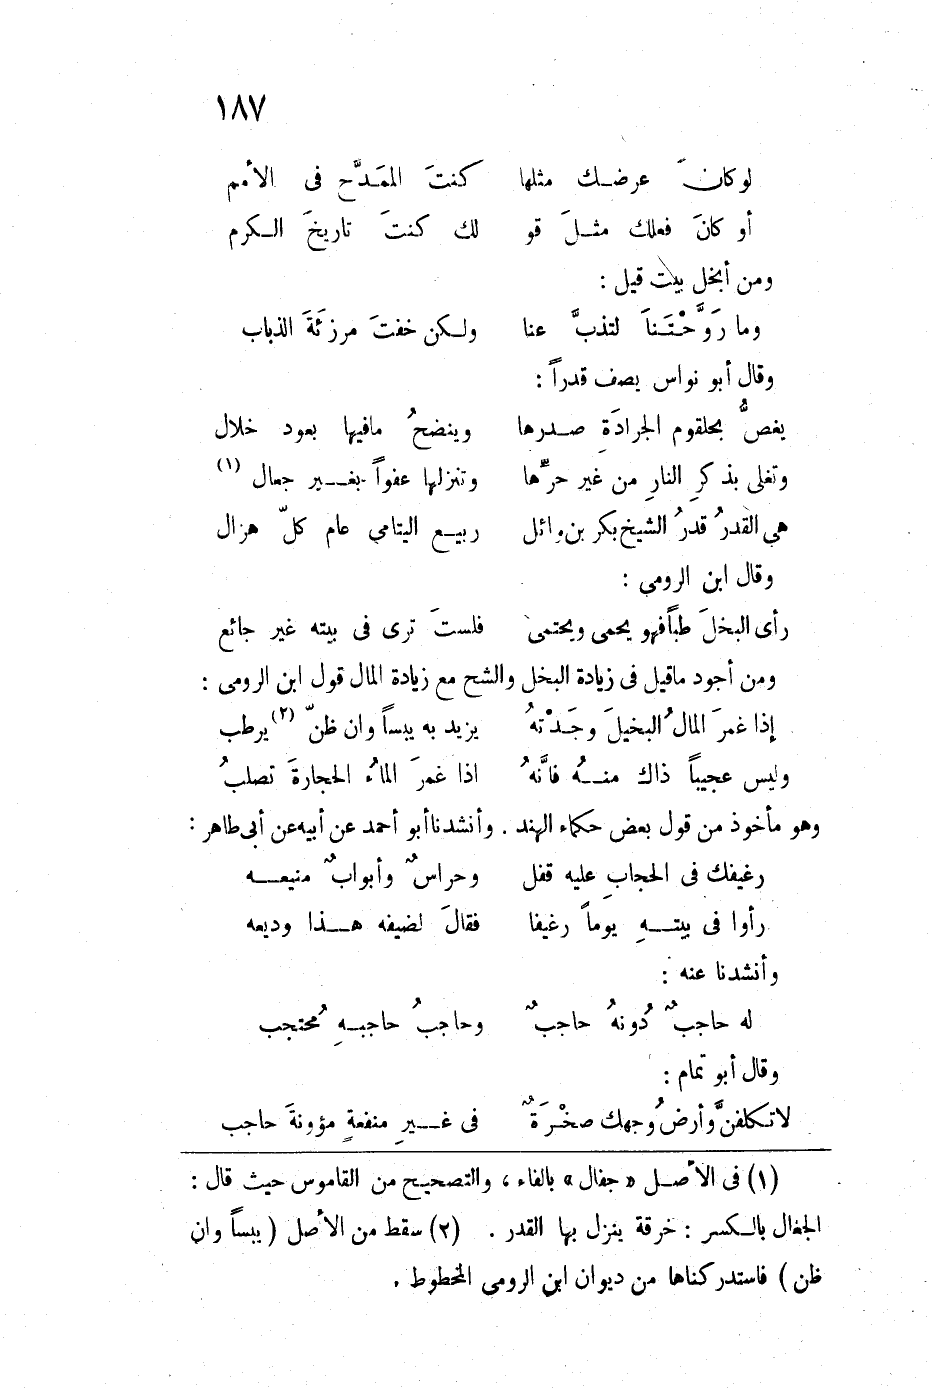 ١٨٧
لوكان عرضك مثلها كنتَ الممَدَّح فى الأمم
أو كانَ فعلك مثلَ قو لك كنتَ تاريخَ الكرم
ومن أبخل بيت قيل :
وما رَوَّحْتَنا لتذبَّ عنا ولكن خفتَ مرزئَةَ الذباب
وقال أبو نواس يصف قدراً :
يغصُّ بحلقوم الجرادَةِ صدرها وينضحُ مافيها بعود خلال
وتغلى بذكرِ النارِ من غير حرِّها وتنزلها عفواً بغير جعال (١)
هى القدرُ قدرُ الشيخ بكر بن وائل ربيع اليتامى عام كلّ هزال
وقال ابن الرومى :
رأى البخلَ طبّاً فهو يحمى ويحتمى فلستَ ترى فى بيته غير جائع
ومن أجود ماقيل فى زيادة البخل والشح مع زيادة المال قول ابن الرومى :
إذا غمرَ المالُ البخيلَ وجَدْتهُ يزيد به يبساً وان ظنّ (٢) يرطب
وليس عجيباً ذاك منهُ فانَّهُ اذا غمرَ الماءُ الحجارةَ تصلبُ
وهو مأخوذ من قول بعض حكماء الهند . وأنشدنا أبو أحمد عن أبيه عن أبى طاهر :
رغيفك فى الحجابِ عليه قفل وحراسٌ وأبوابٌ منيعه
رأوا فى بيتهِ يوماً رغيفا فقالَ لضيفه هذا وديعه
وأنشدنا عنه :
له حاجبٌ دُونهُ حاجبٌ وحاجبُ حاجبهِ مُحتجب
وقال أبو تمام :
لاتكلفنَّ وأرضُ وجهك صخْرَةٌ فى غيرِ منفعةٍ مؤونةَ حاجب
(١) فى الأصل « جفال » بالفاء ، والتصحيح من القاموس حيث قال :
الجعال بالكسر : خرقة ينزل بها القدر . (٢) سقط من الأصل ( يبساً وان
ظن ) فاستدركناها من ديوان ابن الرومى المخطوط .